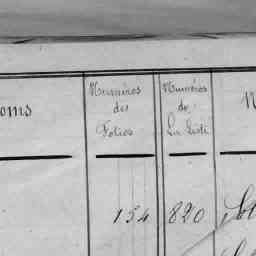 oms
Numéros
des
Folios
Numéros
de
La Liste
N
154
820